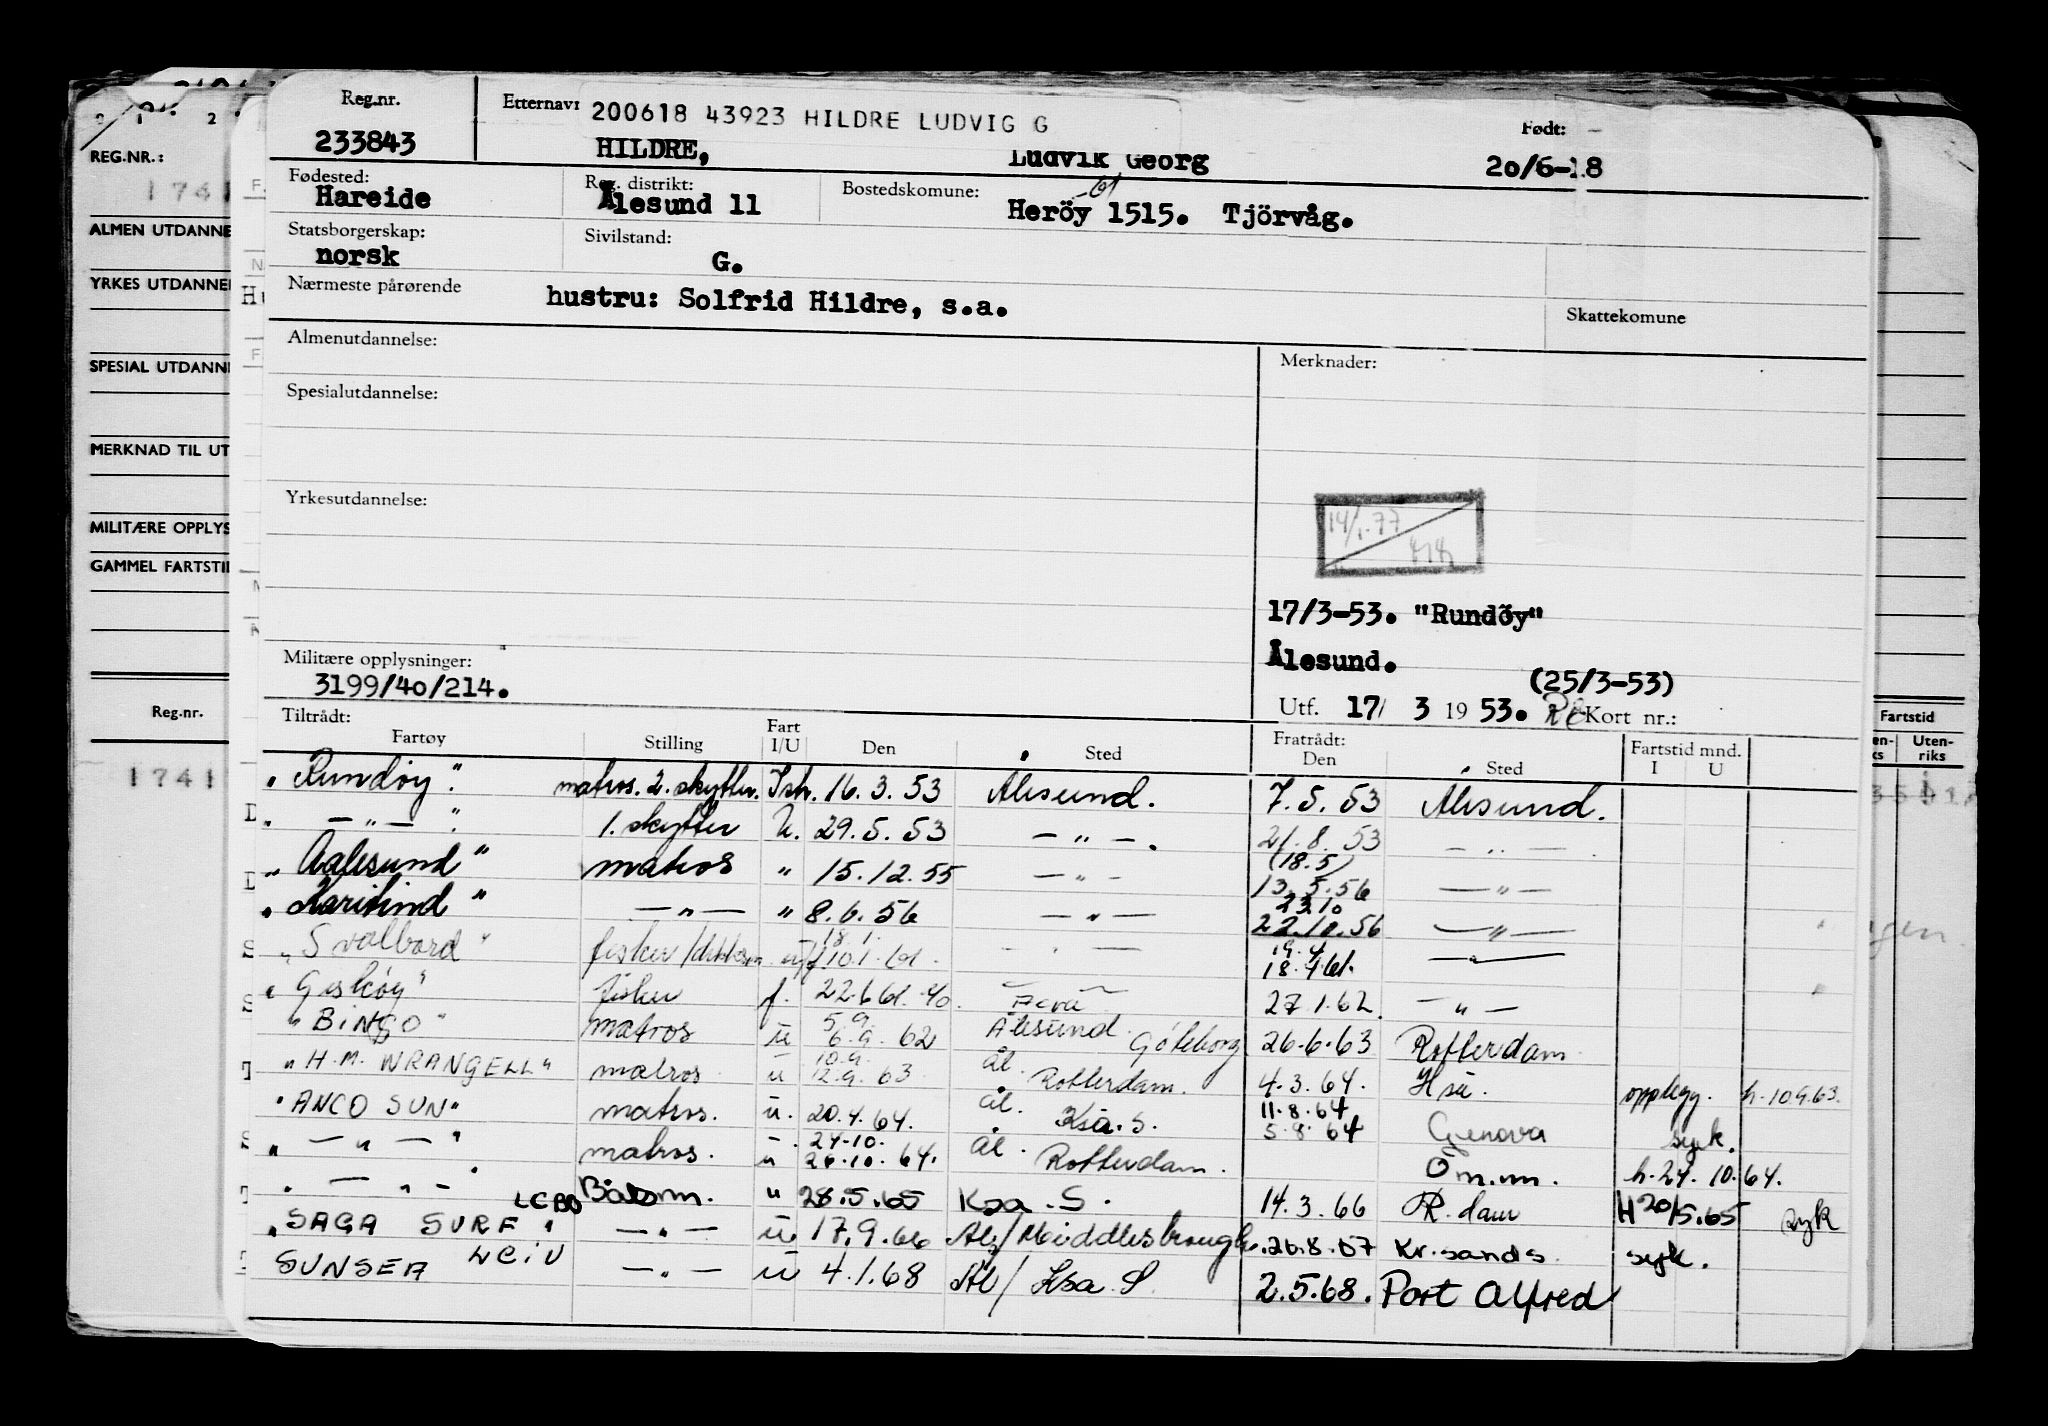 Reg.nr. Etternavn 200618 43923 HILDRE LUDVIG G Født:
233843 HILDRE, Ludvik Georg 20/6-18
Fødested: Reg. distrikt: Bostedskomune:
Hareide Ålesund 11 Heröy 1515. Tjörvåg.
Statsborgerskap: Sivilstand:
norsk G.
Nærmeste pårørende hustru: Solfrid Hildre, s.a. Skattekomune
Almenutdannelse: Merknader:
Spesialutdannelse:
Yrkesutdannelse:
14/1.77
17/3-53. "Rundöy"
Ålesund.
Militære opplysninger: (25/3-53)
3199/40/214. Utf. 17/ 3 19 53. Kort nr.:
Tiltrådt: Fart Fratrådt: Fartstid mnd.
Fartøy Stilling I/U Den Sted Den Sted I U
"Rundöy". matros. 2. skytter. Ish. 16.3.53 Ålesund. 7.5.53 Ålesund.
" — " — " 1. skytter U. 29.5.53 — " — . 21.8.53 — " —
(18.5)
"Aalesund" matros " 15.12.55 — " — 13.5.56 — " —
23.10
" " — " — " 8.6.56 — " — 22.10.56 — " —
18.1. 19.4
"Svalbard" fisker 10.1.61. — " — 18.4.61. — " —
"Giskøy" fisker f. 22.6.61. 27.1.62. — " —
5.9
"BINGO" matros u 6.9.62 Ålesund. Göteborg 26.6.63 Rotterdam
10.9.
"H.M. WRANGELL" matros u 12.9.63 Ål. Rotterdam. 4.3.64. Hsu. opplegg. h. 10.9.63.
11.8.64
"ANCO SUN" matros. u. 20.4.64. Ål. Ksa. S. 5.8.64 Genova syk.
24.10.
" — " — " matros. u 26.10.64. Ål. Rotterdam. Om.m. h. 24.10.64.
" — " — " Båtsm. " 28.5.65 Ksa. S. 14.3.66 R.dam H 20/5.65 syk
"SAGA SURF" LCBO — " — u. 17.9.66 Ål/Middlesbrough. 26.8.67 Kr.sands. syk.
SUNSEA LCIU — " — u 4.1.68 Ål/Ksa. S. 2.5.68. Port Alfred
REG.NR.:
1741
ALMEN UTDANNE
YRKES UTDANNE
SPESIAL UTDANN
MERKNAD TIL UT
MILITÆRE OPPLYS
GAMMEL FARTSTI
Reg.nr.
1741
Fartstid
Uten-
riks